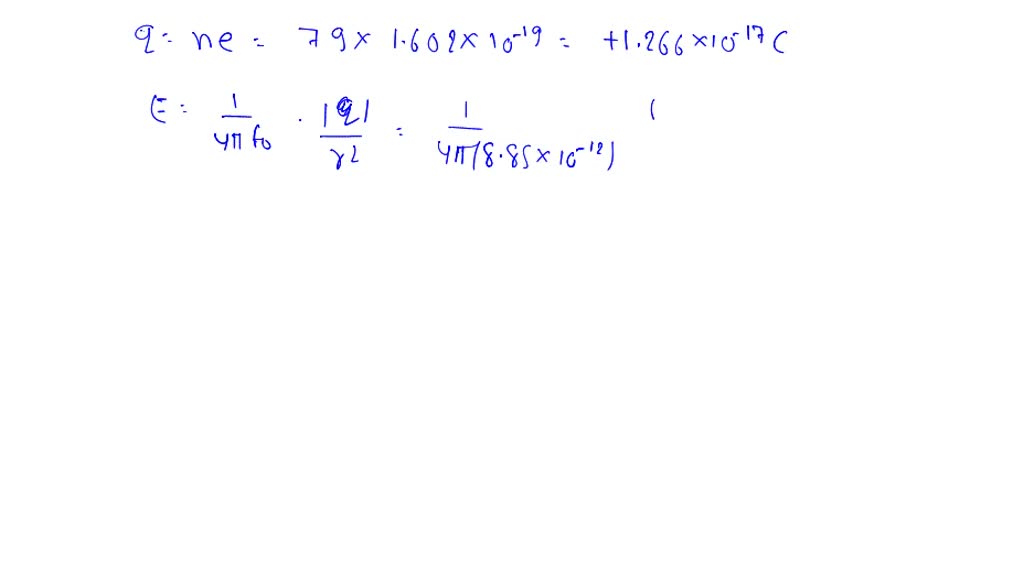 q = ne = 79 × 1.602 × 10⁻¹⁹ = +1.266 × 10⁻¹⁷ C
E = 1/4πε₀ · |q|/r² = 1/4π(8.85 × 10⁻¹²) (